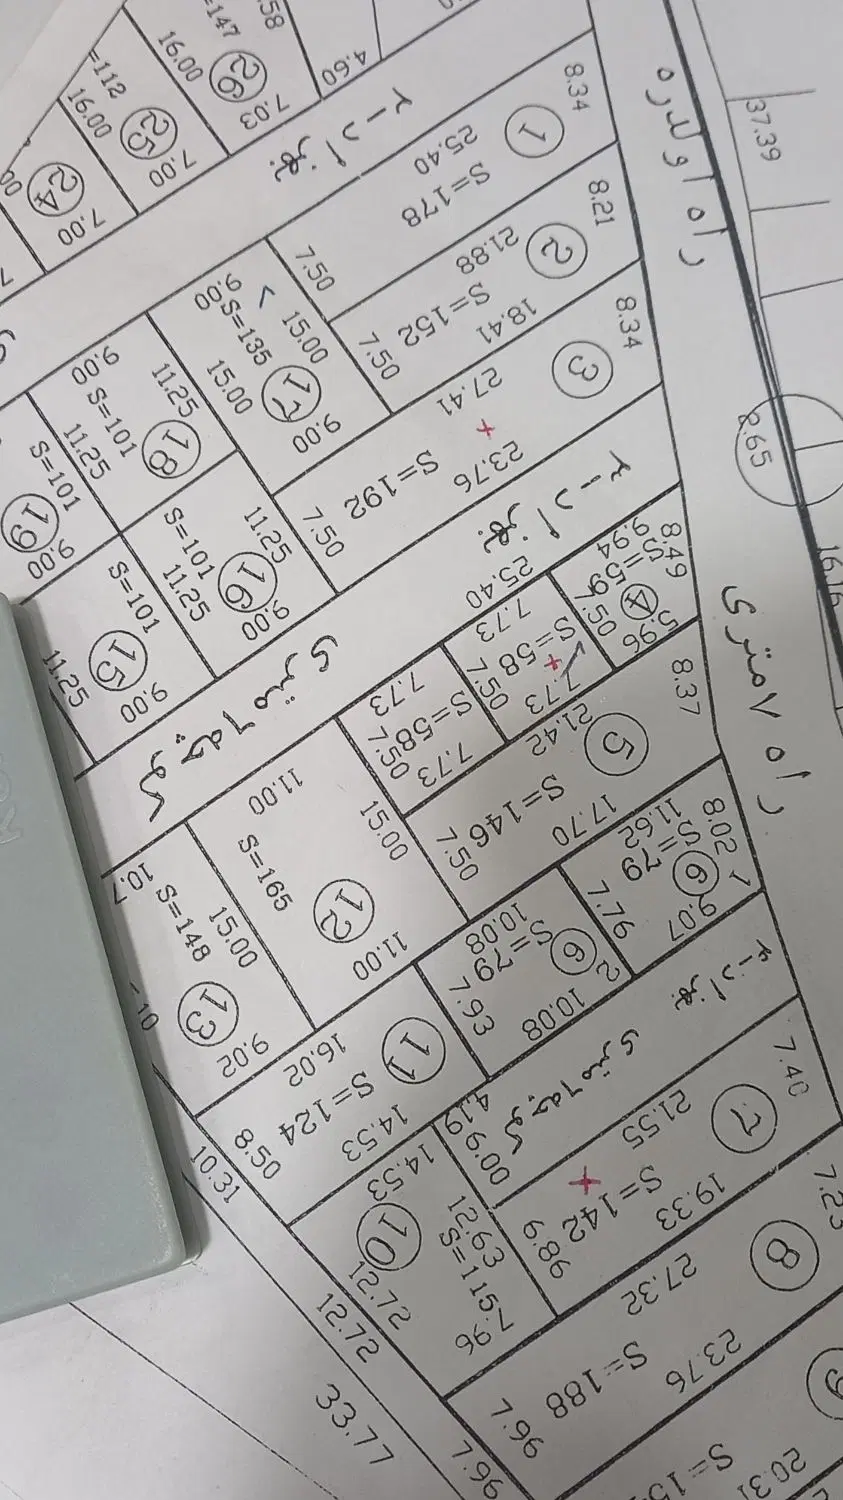 .58
=147
26
7.03
16.00
4.60
=112
25
7.00
16.00
24
7.00
37.39
راه اولدره
بهزاد-۲
8.34
1
25.40
S=178
7.50
8.21
2
21.88
S=152
7.50
8.34
3
18.41
27.41
23.76
S=192
7.50
2.65
16.16
9.00
15.00
S=135
17
15.00
9.00
9.00
11.25
S=101
18
11.25
S=101
19
9.00
11.25
S=101
16
11.25
9.00
S=101
15
9.00
11.25
بهزاد-۲
25.40
کوچه ۶ متری
راه ۷ متری
8.49
9.94
S=59
4
7.05
5.96
7.73
S=58
7.05
7.73
7.73
S=58
7.05
7.73
8.37
5
21.42
S=146
17.70
7.50
8.02
11.62
S=79
6
1
9.07
7.76
10.08
S=79
6
2
10.08
7.93
11.00
S=165
15.00
12
11.00
10.7
S=148
15.00
13
9.02
11
16.02
S=124
14.53
8.50
بهزاد-۳
کوچه ۶ متری
4.19
9.00
7.40
7
21.55
S=142
19.33
9.86
14.53
10
12.63
S=115
12.72
7.96
10.31
12.72
33.77
7.23
8
27.32
S=188
23.76
7.96
7.96
9
20.31